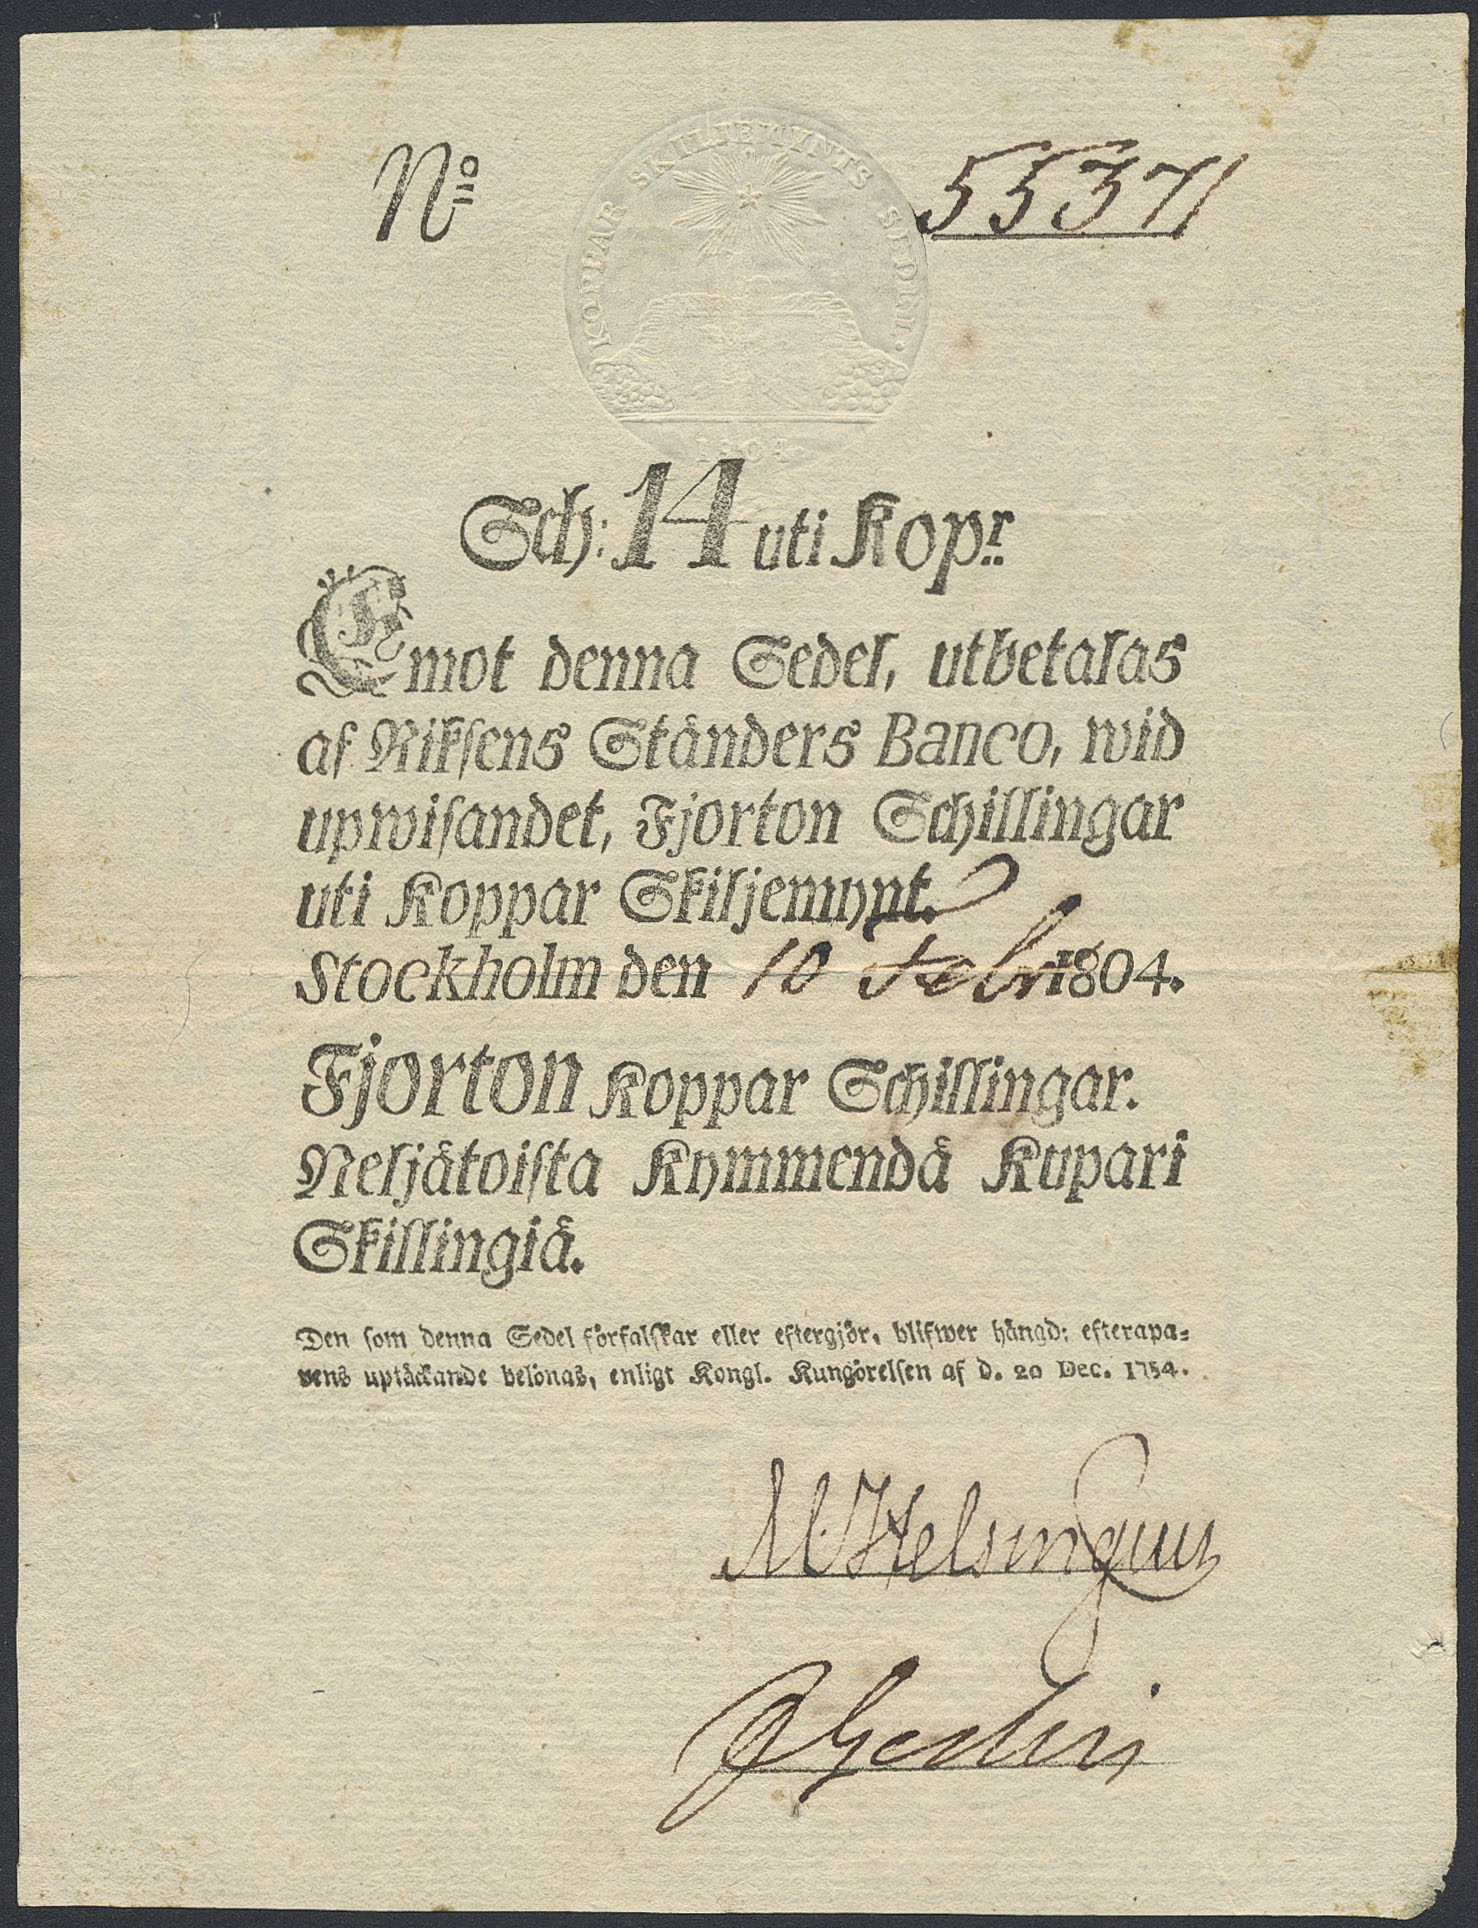 KOPPAR SKILJEMYNTS SEDEL.
No 55371
1804.
Sch: 14 uti Kopr
Emot denna Sedel, utbetalas
af Rikſens Ständers Banco, wid
upwiſandet, Fjorton Schillingar
uti Koppar Skiljemynt.
Stockholm den 10 Febr 1804.
Fjorton Koppar Schillingar.
Neljätoiſta Kymmendä Kupari
Skillingiä.
Den ſom denna Sedel förfalſkar eller eftergjör, blifwer hängd; efterapa-
rens uptäckande belönas, enligt Kongl. Kungörelſen af d. 20 Dec. 1754.
M. Helsingius